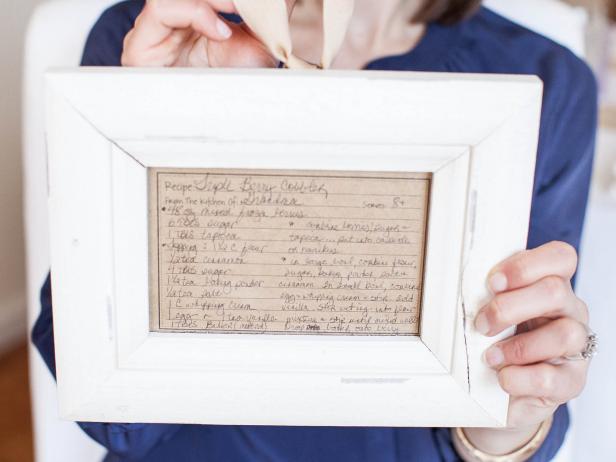 Recipe Triple Berry Cobbler
From The Kitchen Of Shaunna Serves 8+
*48 oz mixed frozen berries
6 TBLS sugar * combine berries, sugar +
1 TBLS tapioca tapioca... put into casserole
or ramikins
*Topping: 1 1/2 C flour * in large bowl, combine flour,
1/2 tea cinnamon sugar, baking powder, salt +
4 TBLS sugar cinnamon. In small bowl, combine
baking powder egg + whipping cream + stir. Add
1/2 tea salt wet ing. into flour
1 C whipping cream mixture + stir until mixed well
1 egg 1 tea vanilla Drop batter onto berry
TBLS Butter (melted)